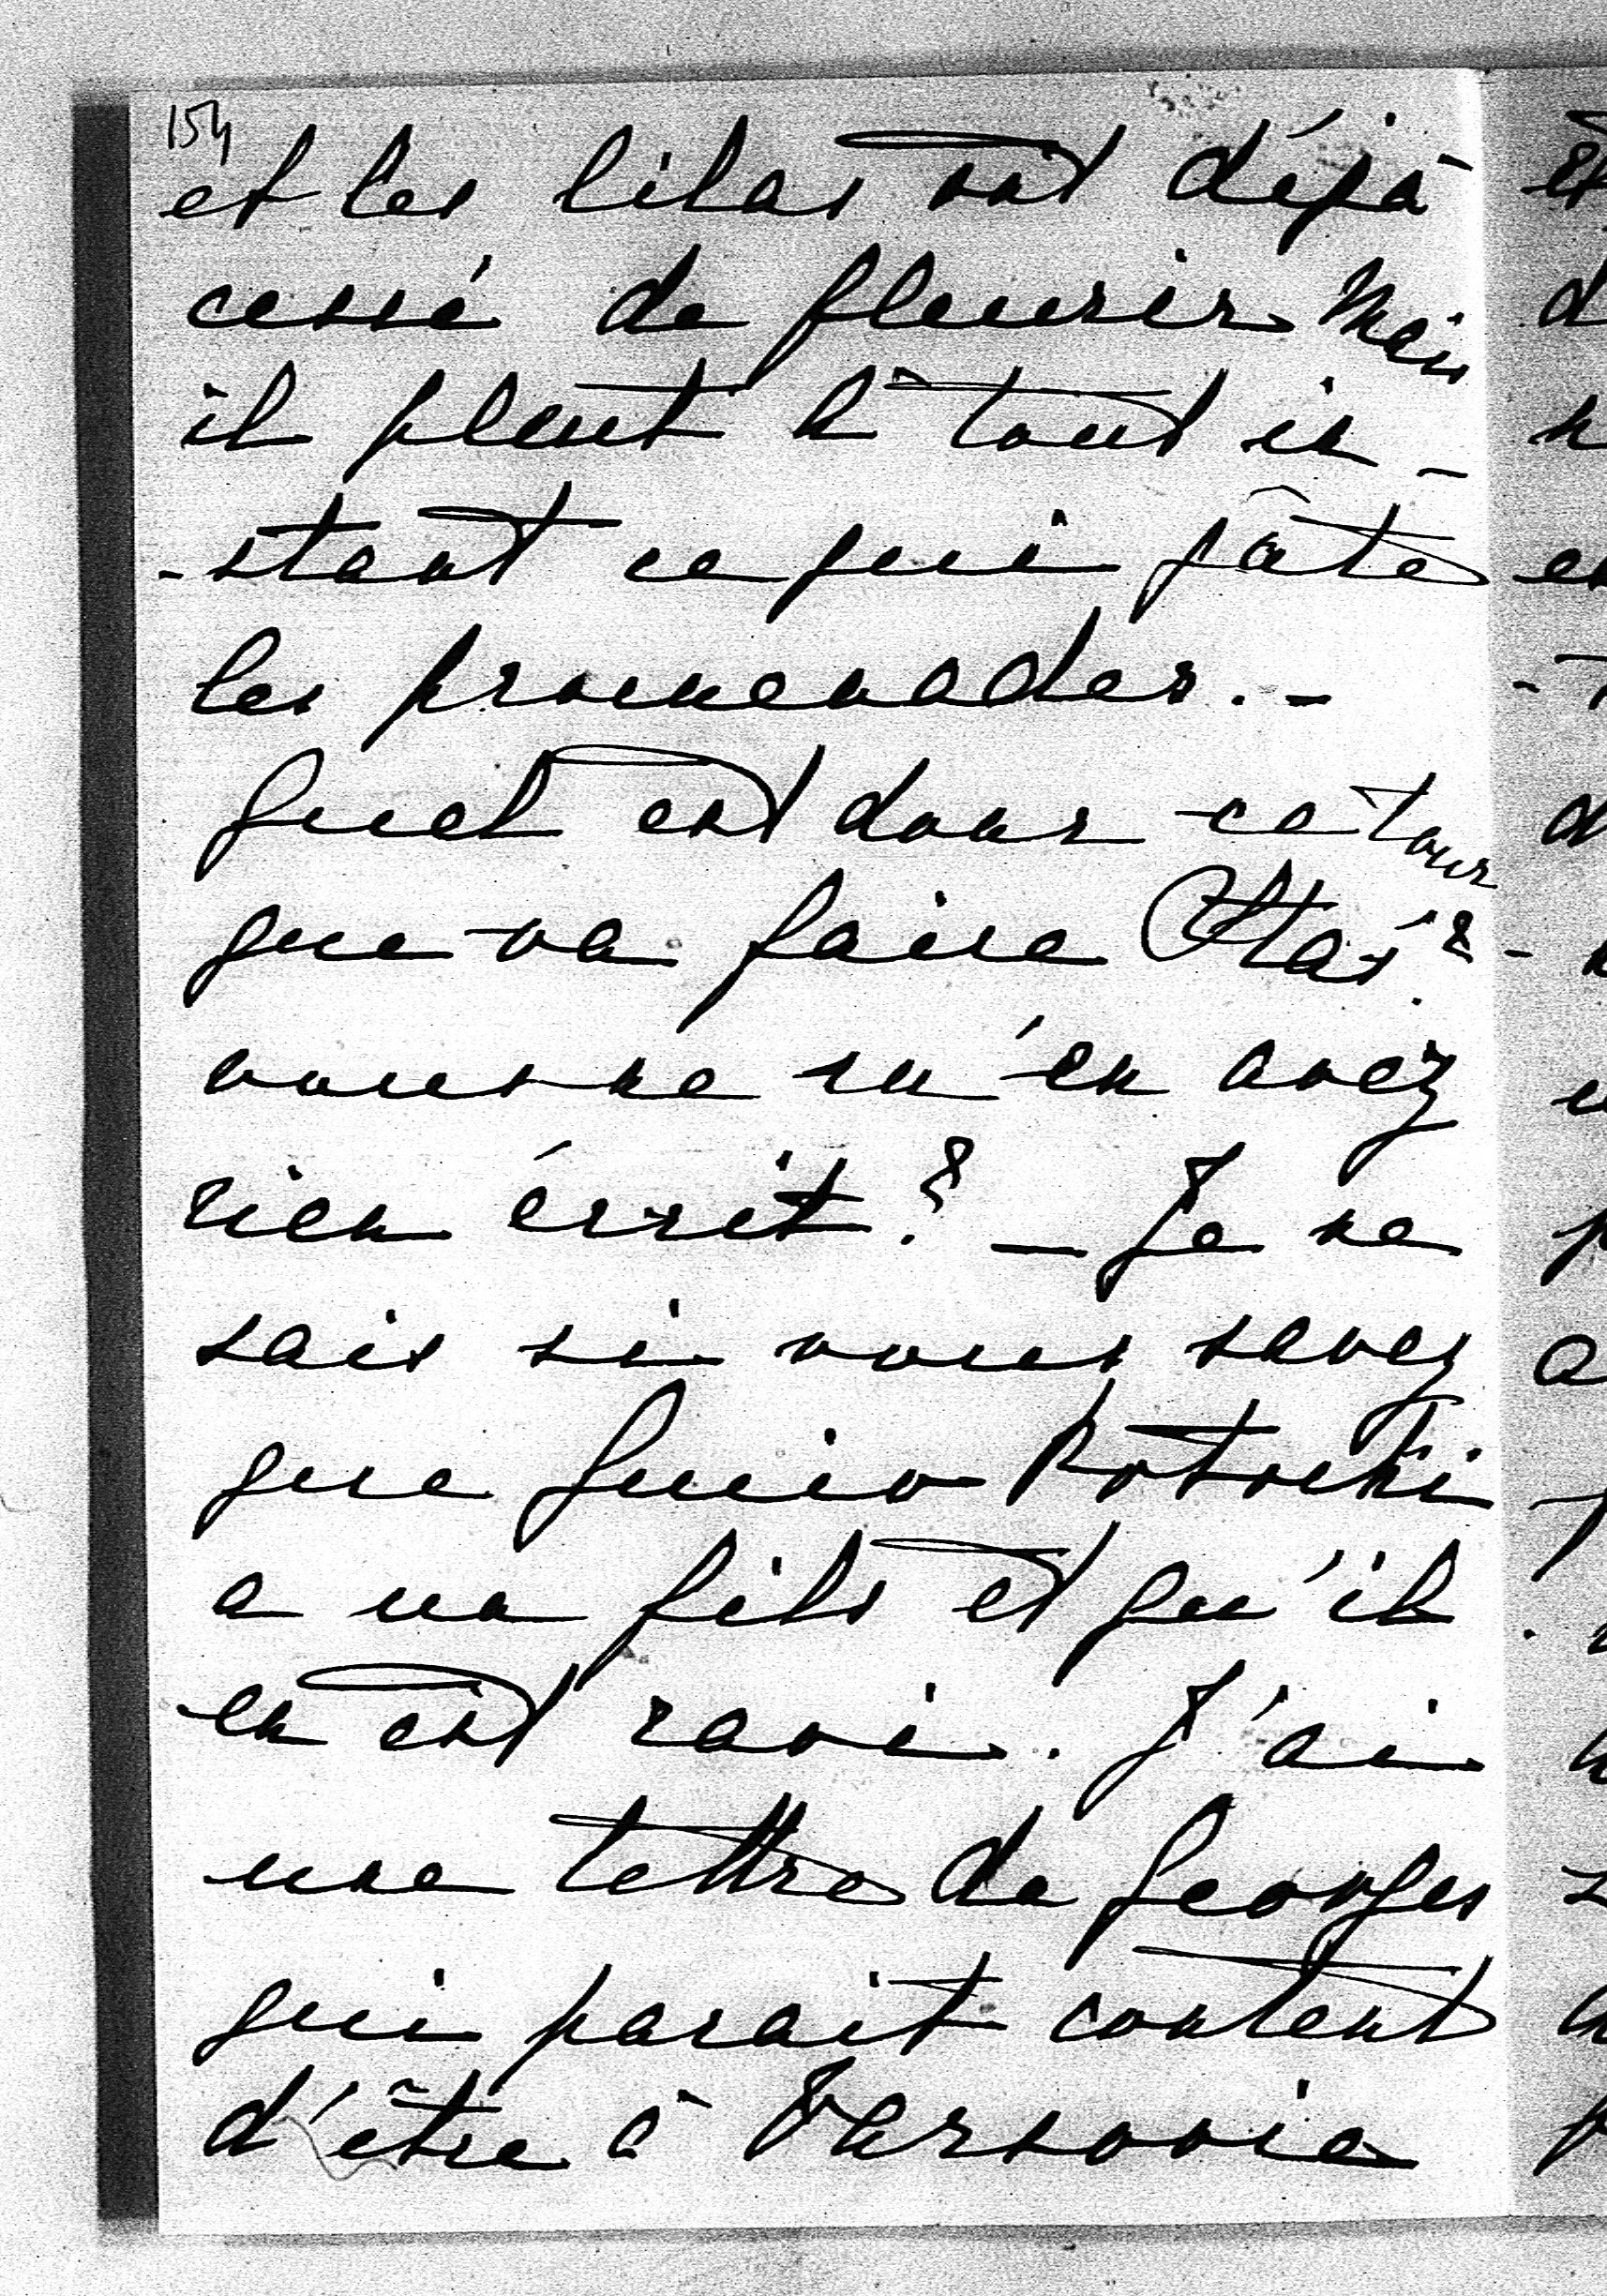 154
et les lilas ont déjà
cessé de fleurir Mais
il pleut à tout in-
-stant ce qui gâte
les promenades. -
Quel est donc ce tour
que va faire Staś?
vous ne m'en avez
rien écrit? - Je ne
sais si vous savez
que Gucio Potocki
a un fils et qu'il
en est ravi. J'ai
une lettre de Georges
qui parait content
d'être à Varsovie